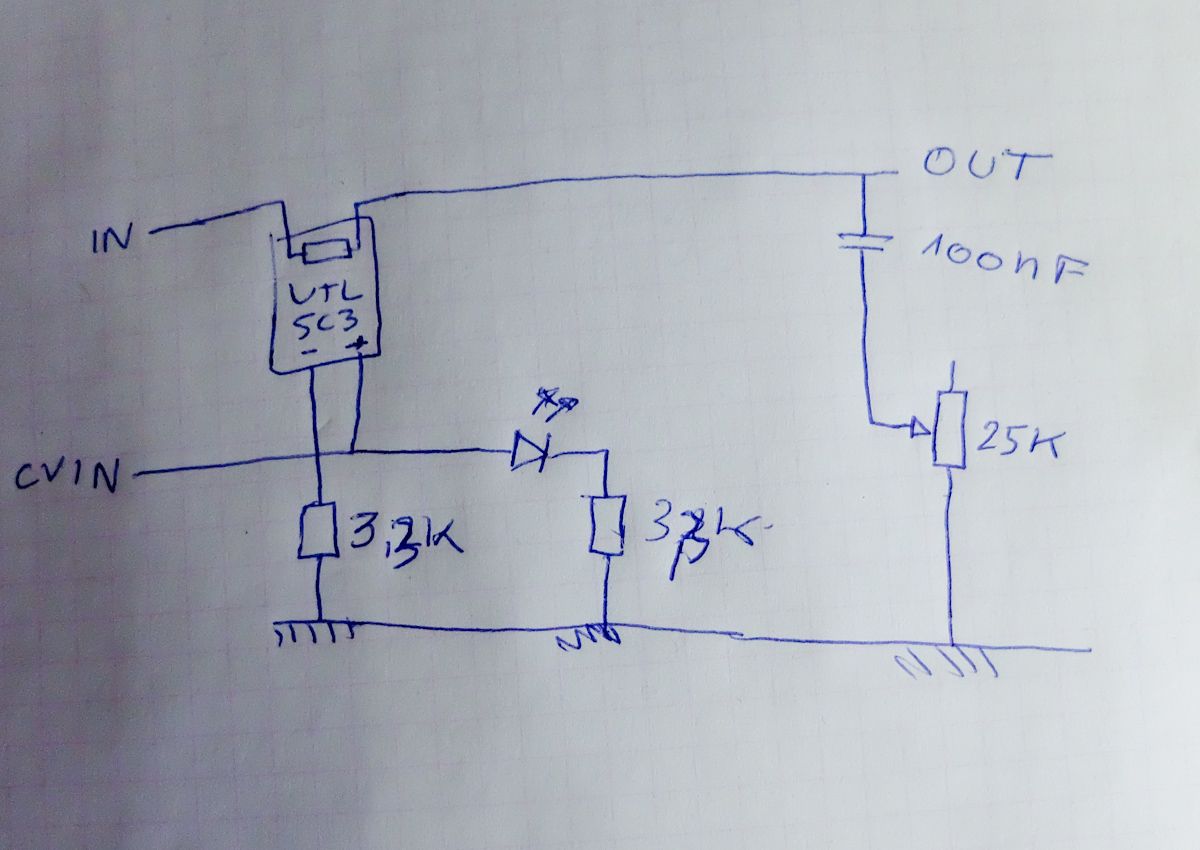 OUT
IN
100nF
VTL
5C3
- +
25K
CVIN
3,3K
3,3K